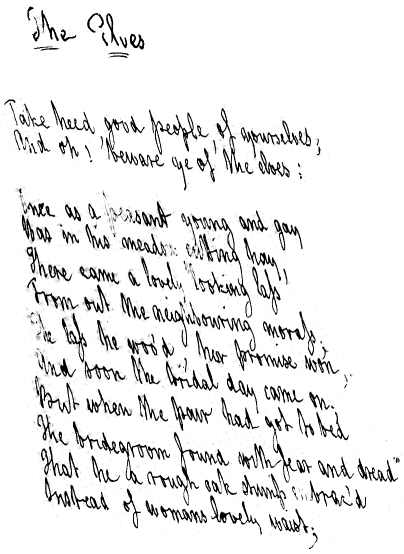 The Elves
Take heed good people of yourselves;
And oh! beware ye of the elves:
Once as a peasant young and gay
Was in his meadow cutting hay,
There came a lovely looking lass
From out the neighbouring morass;
The lass he woo'd, her promise won,
And soon the bridal day came on.
But when the pair had got to bed
The bridegroom found with fear and dread
That he a rough oak stump embrac'd
Instead of womans lovely waist;